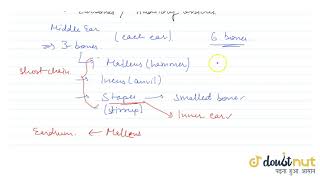 Middle Ear (each ear) 6 bones
⇒ 3-bones
short-chain → Malleus (hammer)
→ Incus (anvil)
→ Stapes → smallest bone
(stirrup) → Inner ear
Eardrum ← Malleus
doubtnut
पढ़ना हुआ आसान